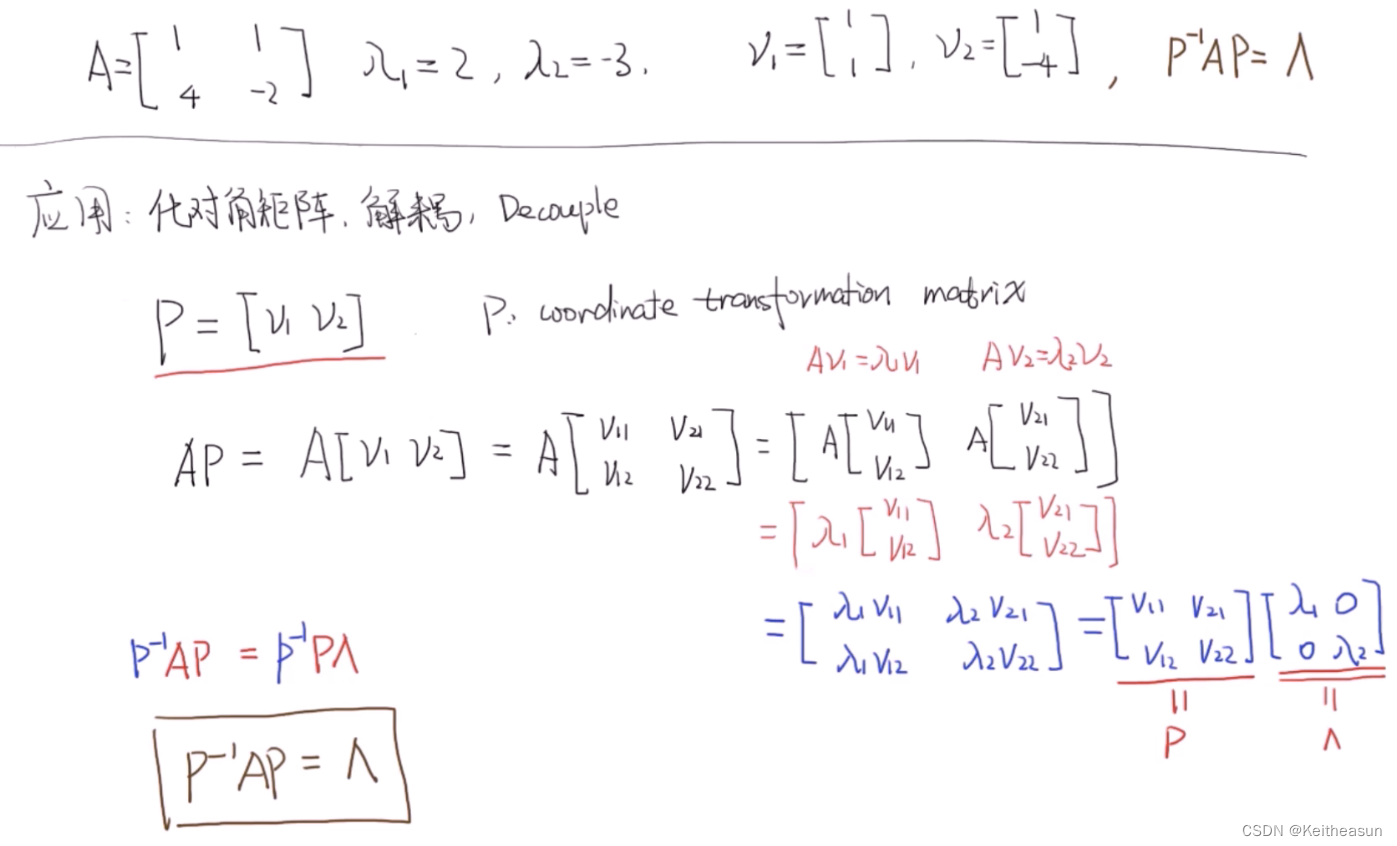 A=[1 1; 4 -2] λ₁=2, λ₂=-3. ν₁=[1; 1], ν₂=[1; -4], P⁻¹AP=Λ
应用: 化对角矩阵. 解耦, Decouple
P=[ν₁ ν₂] P: coordinate transformation matrix
Aν₁=λ₁ν₁ Aν₂=λ₂ν₂
AP = A[ν₁ ν₂] = A[ν₁₁ ν₂₁; ν₁₂ ν₂₂] = [A[ν₁₁; ν₁₂] A[ν₂₁; ν₂₂]]
=[λ₁[ν₁₁; ν₁₂] λ₂[ν₂₁; ν₂₂]]
=[λ₁ν₁₁ λ₂ν₂₁; λ₁ν₁₂ λ₂ν₂₂] =[ν₁₁ ν₂₁; ν₁₂ ν₂₂][λ₁ 0; 0 λ₂]
P⁻¹AP = P⁻¹PΛ
= =
P Λ
P⁻¹AP = Λ
CSDN @Keitheasun